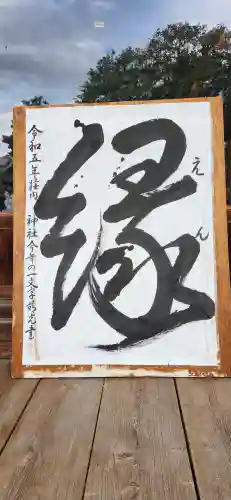 縁
えん
令和五年荘内
神社今年の一文字